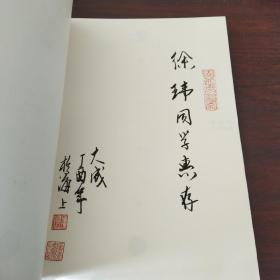 徐玮同学惠存
大成
丁酉年
于海上